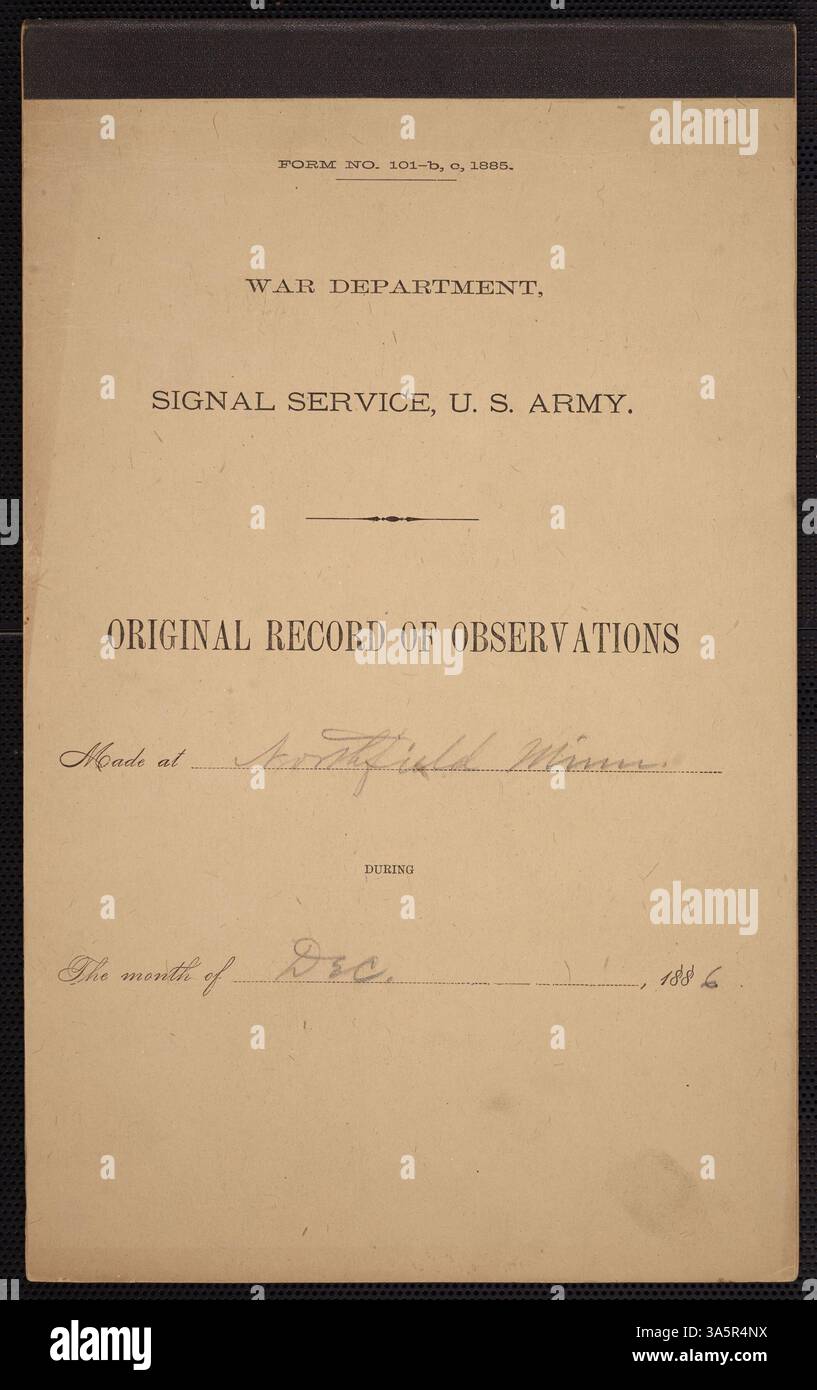 FORM NO. 101-b, c, 1885.
WAR DEPARTMENT,
SIGNAL SERVICE, U. S. ARMY.
ORIGINAL RECORD OF OBSERVATIONS
Made at Northfield Minn.
DURING
The month of Dec. , 1886.
alamy
alamy
alamy
alamy
Image ID: 3A5R4NX
www.alamy.com